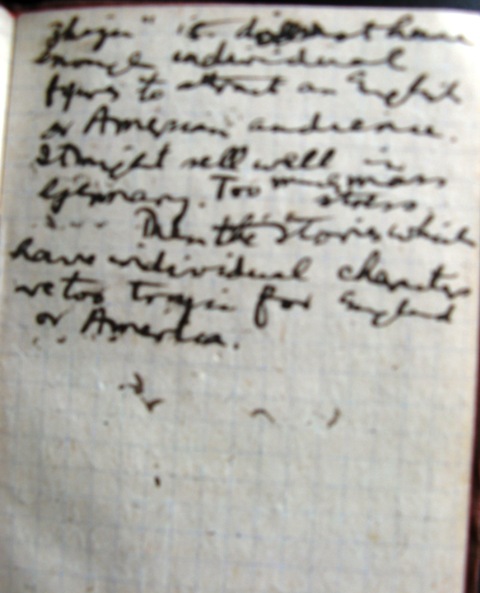 it does not have
enough individual
figures to attract an English
or American audience.
It might sell well in
Germany. Too much mass
stress
Then the stories which
have individual characters
are too tragic for England
or America.